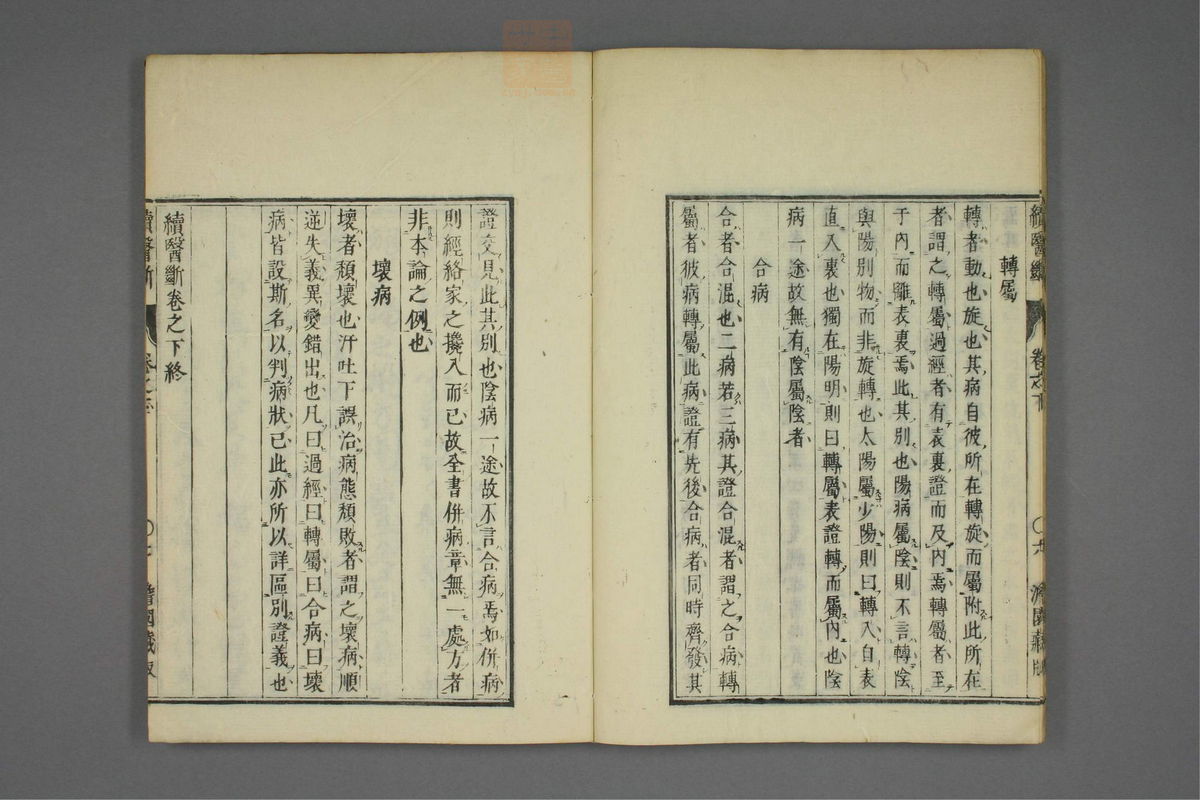 續醫斷
卷之下
轉屬
轉者動也旋也其病自彼所在轉旋而屬附此所在
者謂之轉屬過經者有表裏證而及內焉轉屬者至
于內而離表裏焉此其別也陽病屬陰則不言轉陰
與陽別物而非旋轉也太陽屬少陽則曰轉入自表
直入裏也獨在陽明則曰轉屬表證轉而屬內也陰
病一途故無有陰屬陰者
合病
合者合混也二病若三病其證合混者謂之合病轉
屬者彼病轉屬此病證有先後合病者同時齊發其
證交見此其別也陰病一途故不言合病焉如併病
則經絡家之攙入而已故全書併病章無一處方者
非本論之例也
壞病
壞者頹壞也汗吐下誤治病態頹敗者謂之壞病順
逆失義異變錯出也凡曰過經曰轉屬曰合病曰壞
病皆設斯名以判病狀已此亦所以詳區別證義也
續醫斷卷之下終
續醫斷